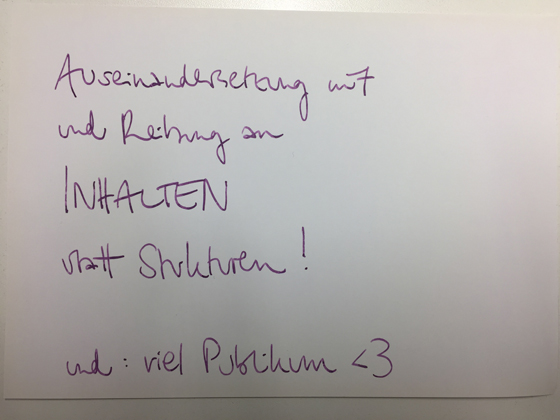 Auseinandersetzung mit
und Reibung an
INHALTEN
statt Strukturen!
und: viel Publikum <3